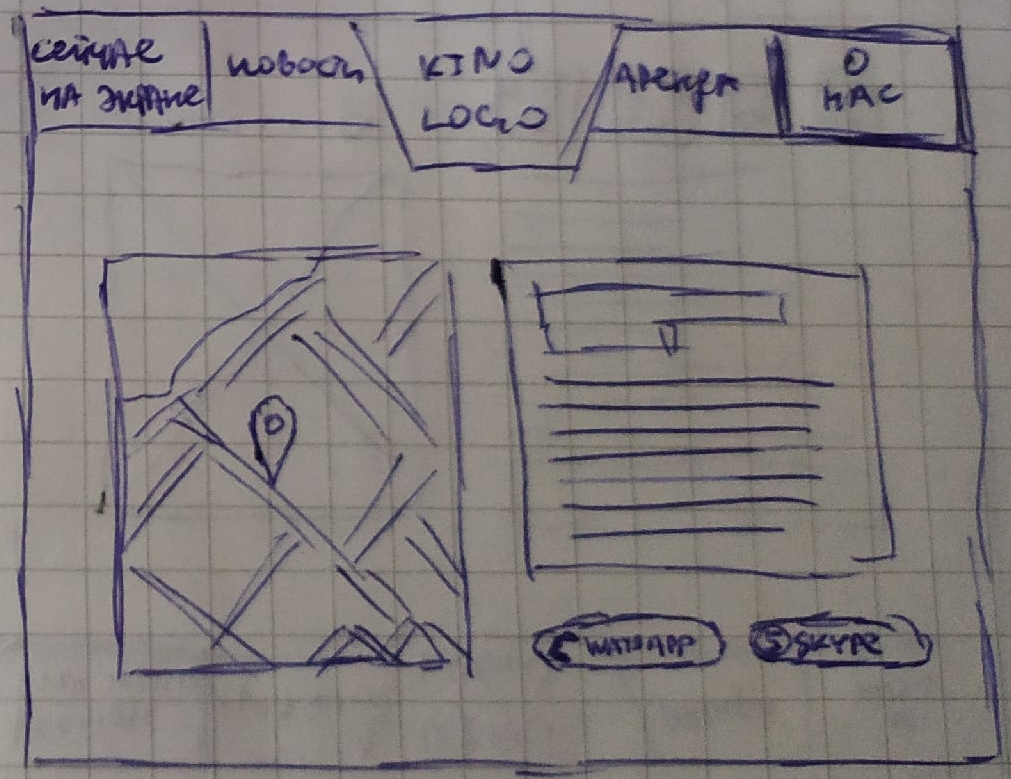 сейчас
на экране
новости
KINO
LOGO
Аренда
О
НАС
WHATSAPP
SKYPE